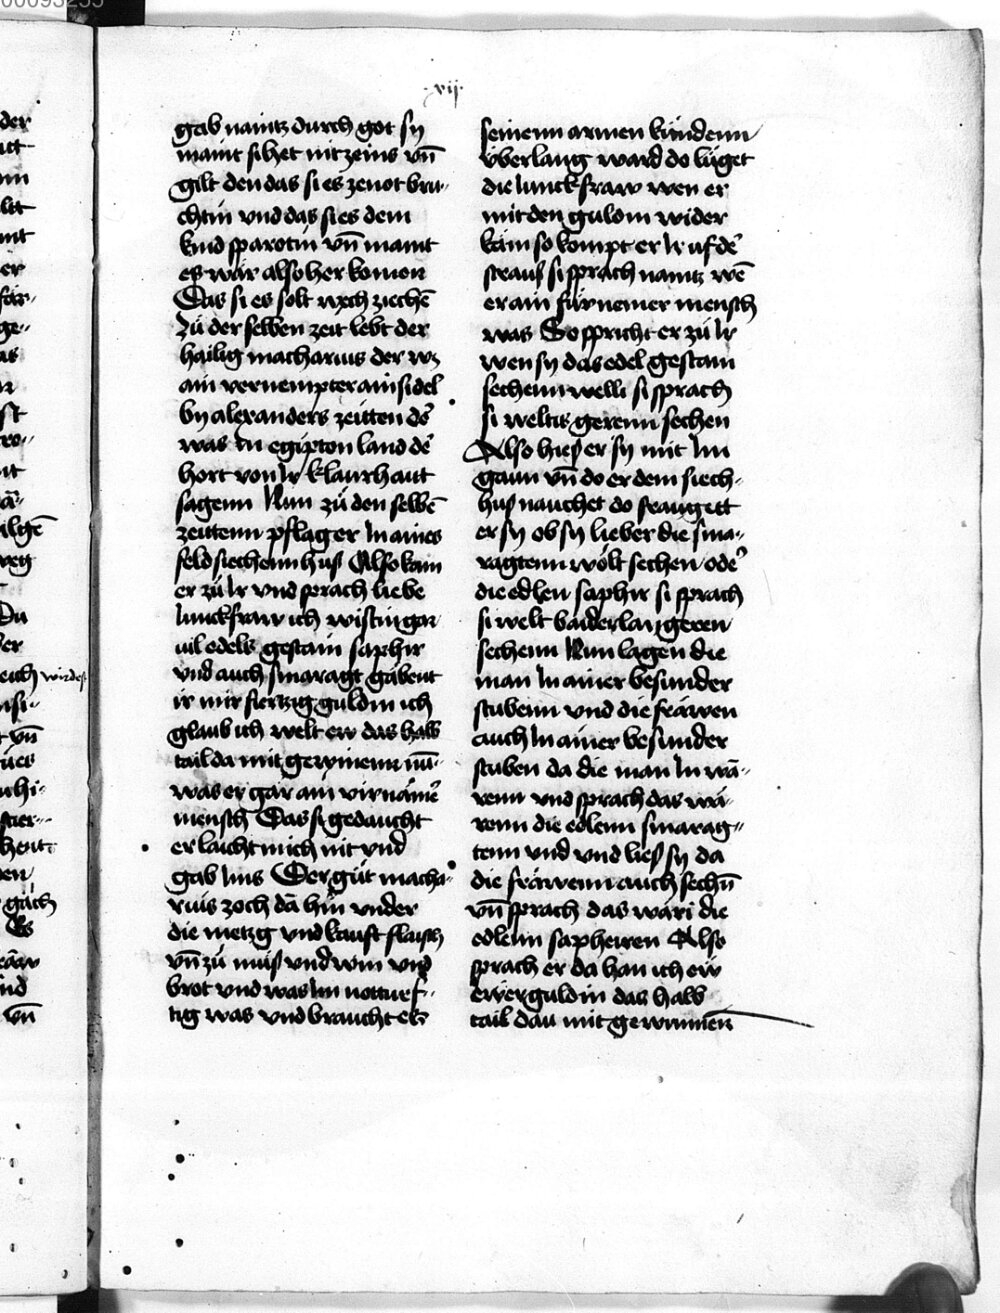 vij
gab naintz durch got sy
maint si het nit zeins vn̄
gilt den das si es ze not bru-
chtin vnd das si es dem
kind sparotin vn̄ maint
es wär also her komen
Das si es solt wech ziechē
Zů der selben zeit lebt der
hailig macharius der wz
ain vernempter ainsidel
by alexanders zeitten dē
was In egipton land dē
hort von Ir klaurhait
sagenn Nun zů den selbē
zeittenn pflag er In aines
feldsiechenn hus Also kam
er zů Ir vnd sprach liebe
Iunckfraw ich wistin gar
uil edels gestain saphir
vnd auch smaragt gäbent
ir mir fiertzig guldin ich
glaub ich welt ew das halb
tail da mit gewinenn nū
was er gar ain virnämē
mensch Das si gedaucht
er laicht mich nit vnd
gab Ims Der gůt macha-
rius zoch da hin vnder
die metzg vnd kauft flaisch
vn̄ zů můs vnd win vnd
brot vnd was Im notturf-
tig was vnd braucht es
seinenn armen kindenn
v̈berlang ward do lůget
die Iunckfraw wen er
mit den guldin wider
käm so kompt er Ir uf dē
strauß si sprach naintz wē
er ain fürnemer mensch
was So spricht er zů Ir
wen sy das edel gestain
sechenn welli si sprach
si weltis gerenn sechen
Also hies er sy mit Im
gaun vn̄ do er dem siech-
hus nauchet do fraugett
er sy ob sy lieber die sma-
ragtenn wölt sechen odē
die edlen saphir si sprach
si welt baider lai geren
sechenn Nun lagen die
man In ainer besunder
stubenn vnd die frawen
auch In ainer besunder
stuben da die man In wā-
renn vnd sprach das wä-
renn die edlenn smarag-
tenn vnd vnd lies sy da
die fräwenn auch sechn̄
vn̄ sprach das wäri die
edlenn sapheiren Also
sprach er da han ich eẅ
ewer guldin das halb
tail dau mit gewunnen